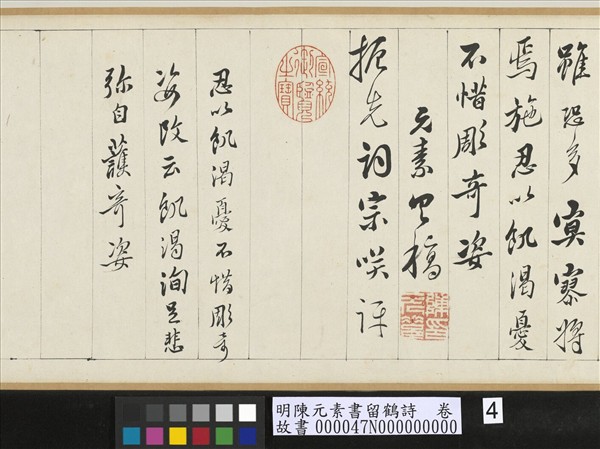 雖恐多寞寥將
焉施忍以飢渴憂
不惜彫奇姿
元素 稿
陳印元素
振先詞宗咲評
宣統御覽之寶
忍以飢渴憂不惜彫奇
姿改云飢渴洵足悲
弥自護奇姿
明陳元素書留鶴詩 卷
故書 000047N000000000
4